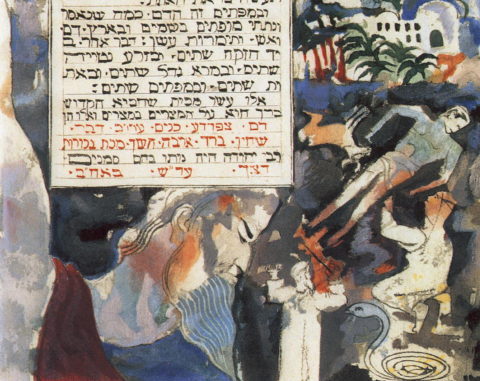 ובמפתים זה הדם· כמה שנאמ
ונתתי מופתים בשמים ובארץ· דם
ואש· ותימרות עשן: דבר אחר· ב
יד חזקה שתים· ובזרע נטוייה
שתים· ובמרא גדל שתים· ובאת
ות שתים· ובמפתים שתים:
אלו עשר מכות שהביא הקדוש
ברך הוא על המצרים במצרים ואלו הן
דם· צפרדע· כנים· ערוב· דבר·
שחין· ברד· ארבה· חשך· מכת בכורות
רבי יהודה היה נותן בהם סמנים
דצ״ך· עד״ש· באח״ב·